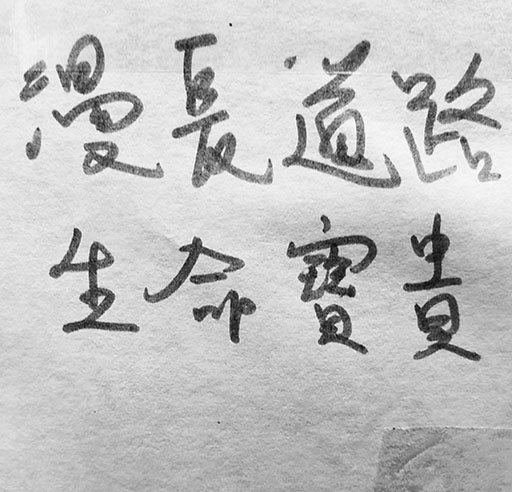 漫長道路
生命寶貴